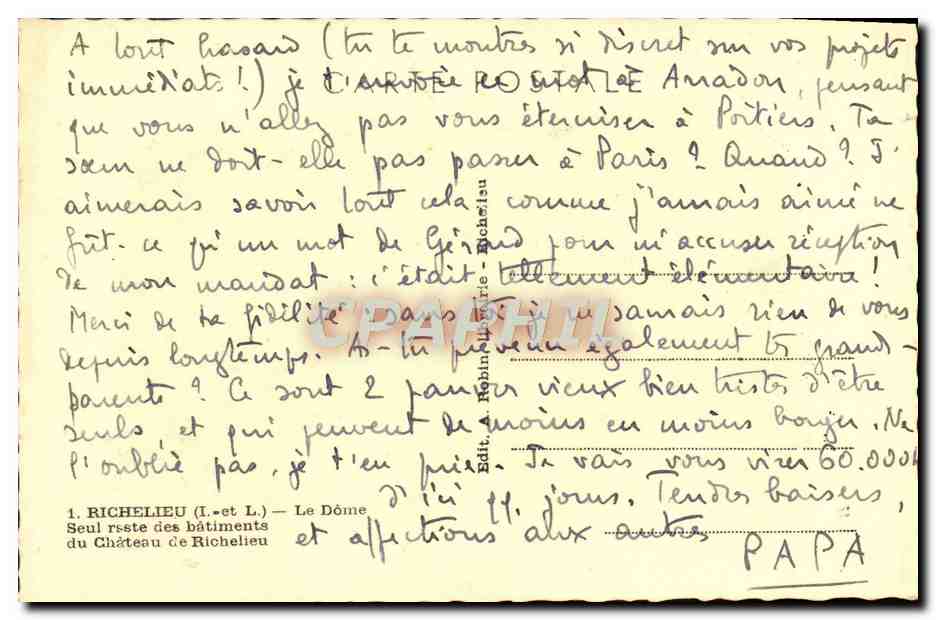 A tout hasard (tu te montres si discret sur vos projets
CARTE POSTALE
immédiats !) je t'envoie ce mot à Arradon, pensant
que vous n'allez pas vous éterniser à Poitiers. Ta
sœur ne doit-elle pas passer à Paris ? Quand ? J'
aimerais savoir tout cela - comme j'amais aimé ne
fût-ce qu'un mot de Gérard pour m'accuser réception
de mon mandat : c'était tellement élémentaire !
Merci de ta fidélité : sans toi je ne saurais rien de vous
depuis longtemps. As-tu prévenu également tes grands-
parents ? Ce sont 2 pauvres vieux bien tristes d'être
seuls et qui peuvent de moins en moins bouger. Ne
l'oublie pas, je t'en prie. Je vais vous virer 60.000
d'ici qq. jours. Tendres baisers,
et affections aux autres
PAPA
1. RICHELIEU (I.-et L.) — Le Dôme
Seul reste des bâtiments
du Château de Richelieu
Edit. A. Robin, Librairie - Richelieu
CPAPHIL